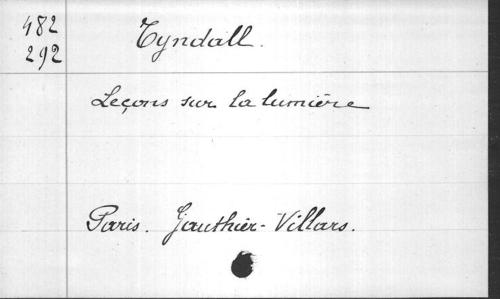 482
292
Tyndall.
Leçons sur la lumière
Paris. Gauthier-Villars.